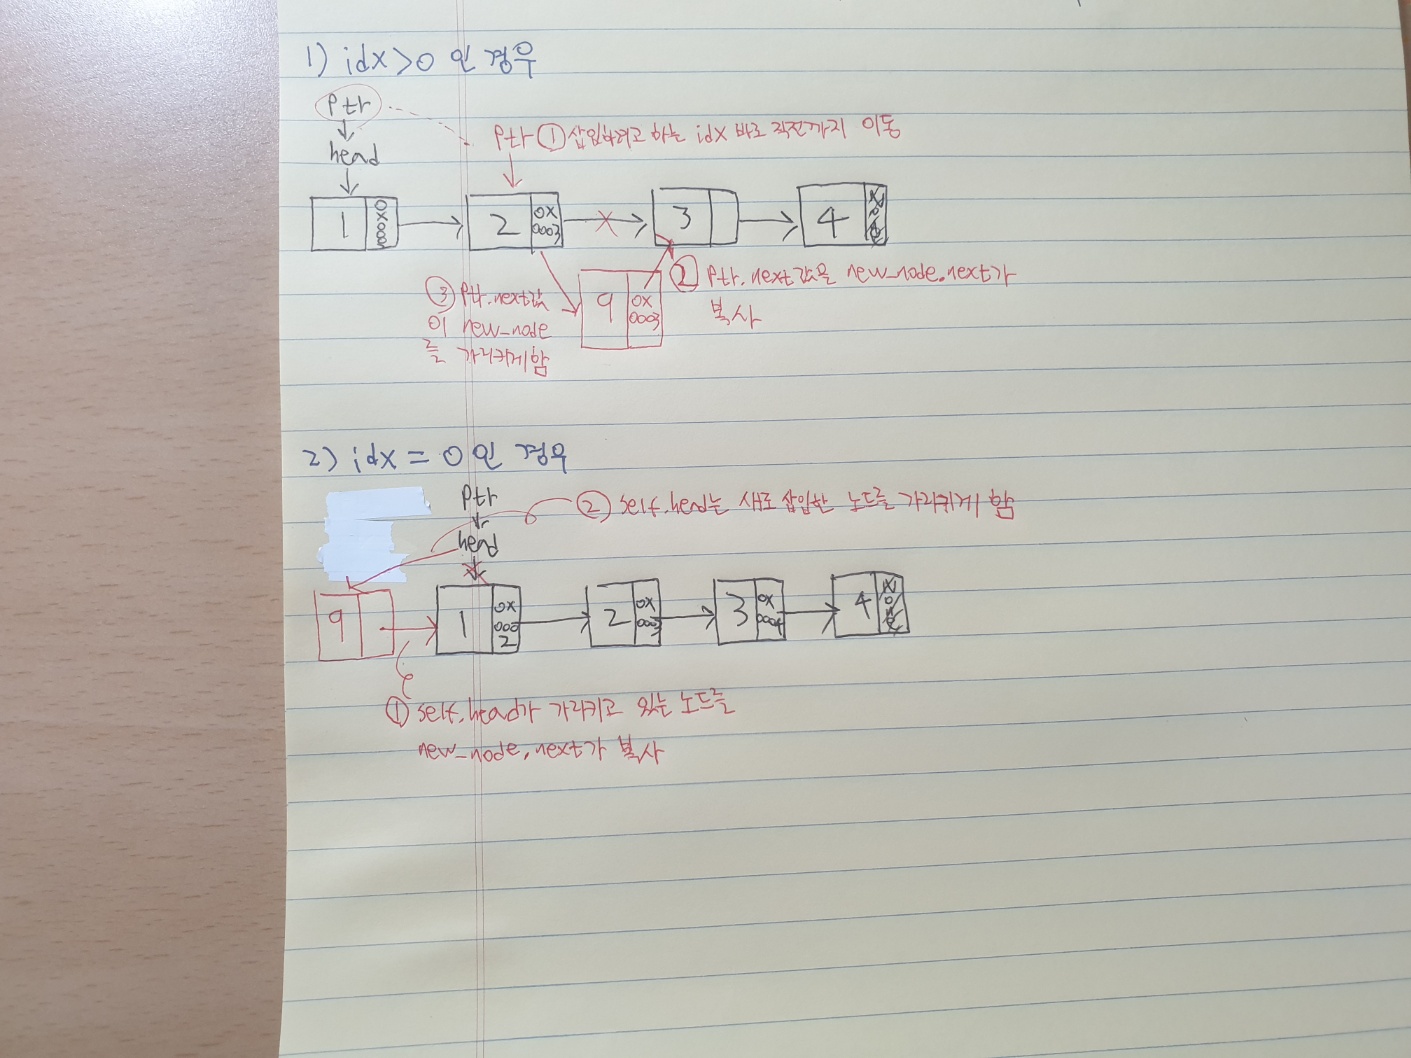 1) idx>0 인 경우
ptr
head
ptr ① 삽입하려고 하는 idx 바로 직전까지 이동
1
2 0X 0003
3
4
② ptr.next값을 new_node.next가
복사
③ ptr.next값
이 new_node
를 가리키게함
9 0X 0003
2) idx = 0 인 경우
ptr
head
② self.head는 새로 삽입한 노드를 가리키게 함
9
1 0X 000 2
2 0X
3 0X 0004
4
① self.head가 가리키고 있는 노드를
new_node.next가 복사